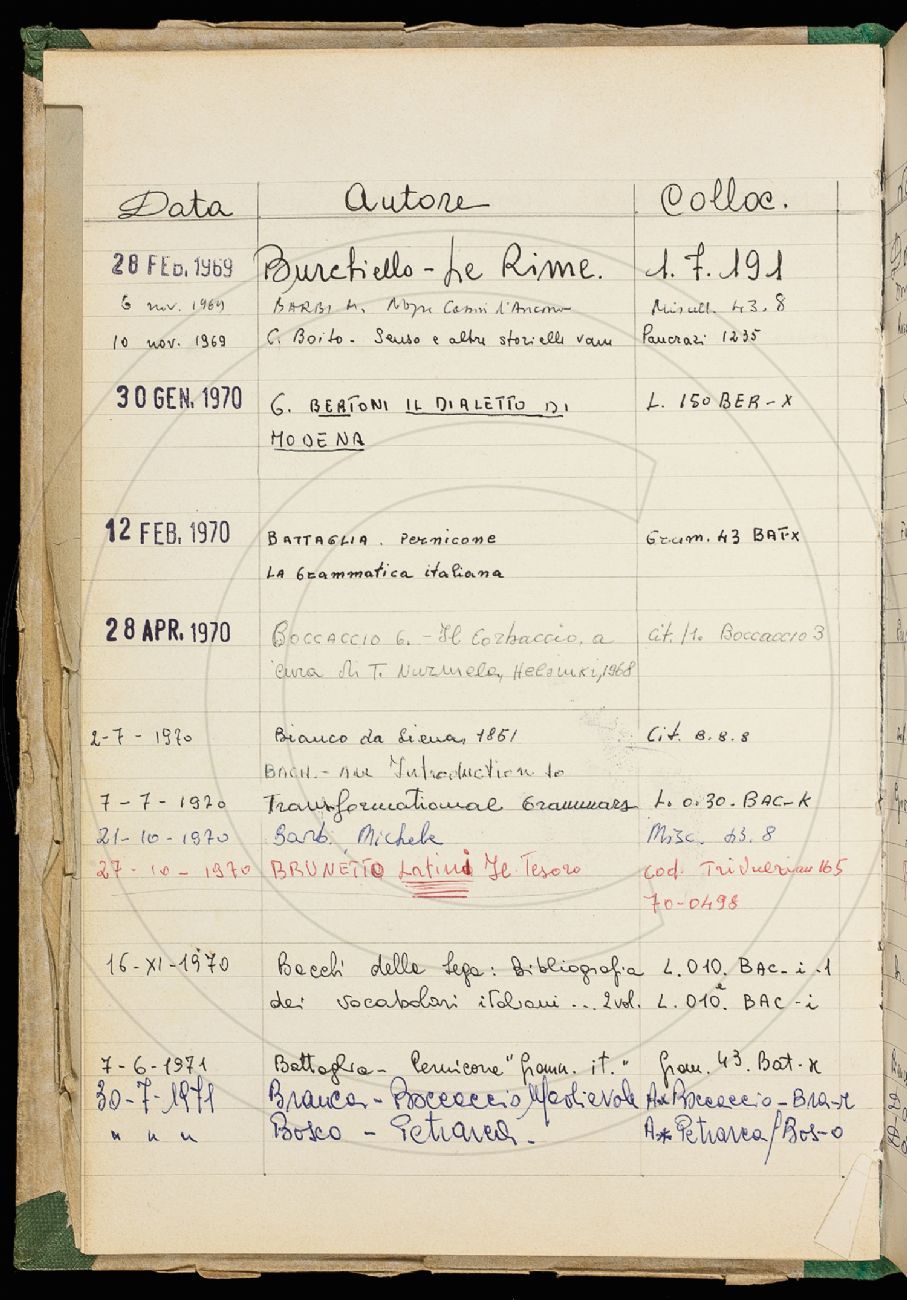 Data Autore Colloc.
28 FEB. 1969 Burchiello - Le Rime. 1. 7. 191
6 nov. 1969 BARBI M. d'Ancona Miscell. 43. 8
10 nov. 1969 C. Boito - Senso e altre storielle vane Pancrazi 1235
30 GEN. 1970 G. BERTONI IL DIALETTO DI L. 150 BER - X
MODENA
12 FEB. 1970 BATTAGLIA . Pernicone Gram. 43 BAT-X
LA Grammatica italiana
28 APR. 1970 BOCCACCIO G. - Il Corbaccio, a Cit. M. Boccaccio 3
cura di T. Nurmela, Helsinki, 1968
2 - 7 - 1970 Bianco da Siena, 1851 Cit. B. 8. 8
BACH. - An Introduction to
7 - 7 - 1970 Transformational Grammars L. 0.30. BAC-K
21 - 10 - 1970 Barbi, Michele Misc. 43. 8
27 - 10 - 1970 BRUNETTO Latini Il Tesoro cod. Trivulziano 165
70-0498
16 - XI - 1970 Bacchi della Lega: Bibliografia L. 010. BAC - i - 1
dei vocabolari italiani ... 2 vol. L. 010. BAC - i
7 - 6 - 1971 Battaglia - Pernicone "Gram. it." Gram. 43. Bat-x
30 - 7 - 1971 Branca - Boccaccio Medievale A* Boccaccio - Bra-r
" " " Bosco - Petrarca - A* Petrarca / Bos-o